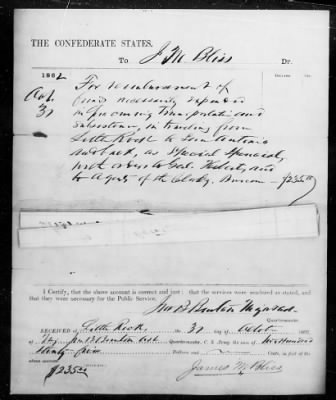 THE CONFEDERATE STATES,
To J. M. Bliss Dr.
1862
Oct
31
For reimbursement of
funds necessarily expended
in procuring transportation and
subsistence, in traveling from
Little Rock to San Antonio
and back, as Special
with orders to Genl. Hebert, and
to Agents of the Bureau — $235
I Certify, that the above account is correct and just; that the services were rendered as stated, and
that they were necessary for the Public Service.
Jno B Major
Quartermaster.
RECEIVED at Little Rock the 31 October 1862,
of Maj Jno B Quartermaster, C. S. Army the sum of two Hundred
thirty five Dollars and Cents, in full of the
above account.
$235
James M. Bliss